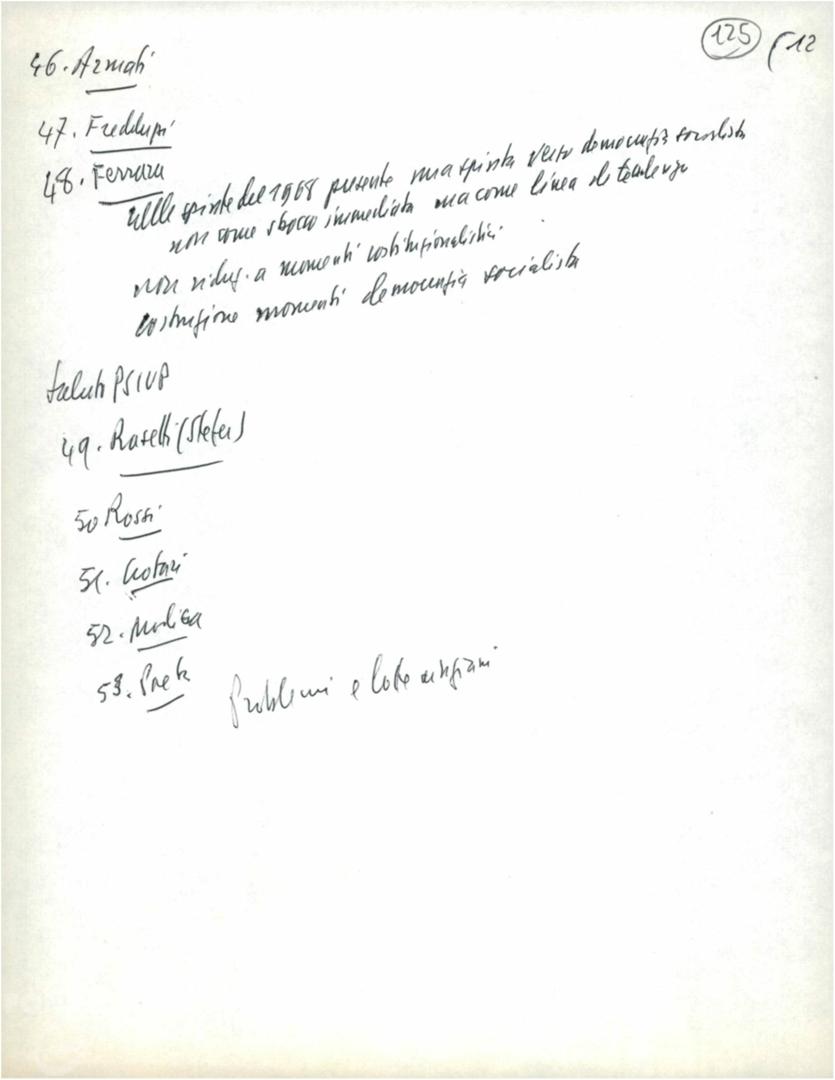 125 (12
46. Armati
47. Fredduzzi
48. Ferrara
nelle spinte del 1968 presente una spinta verso democrazia socialista
non come sbocco immediato ma come linea di tendenza
non riduz. a momenti costituzionalistici
costruzione momenti democrazia socialista
Saluti PSIUP
49. Raselli (Stefer)
50 Rossi
51.
52. Modica
53.
Problemi e lotte anziani